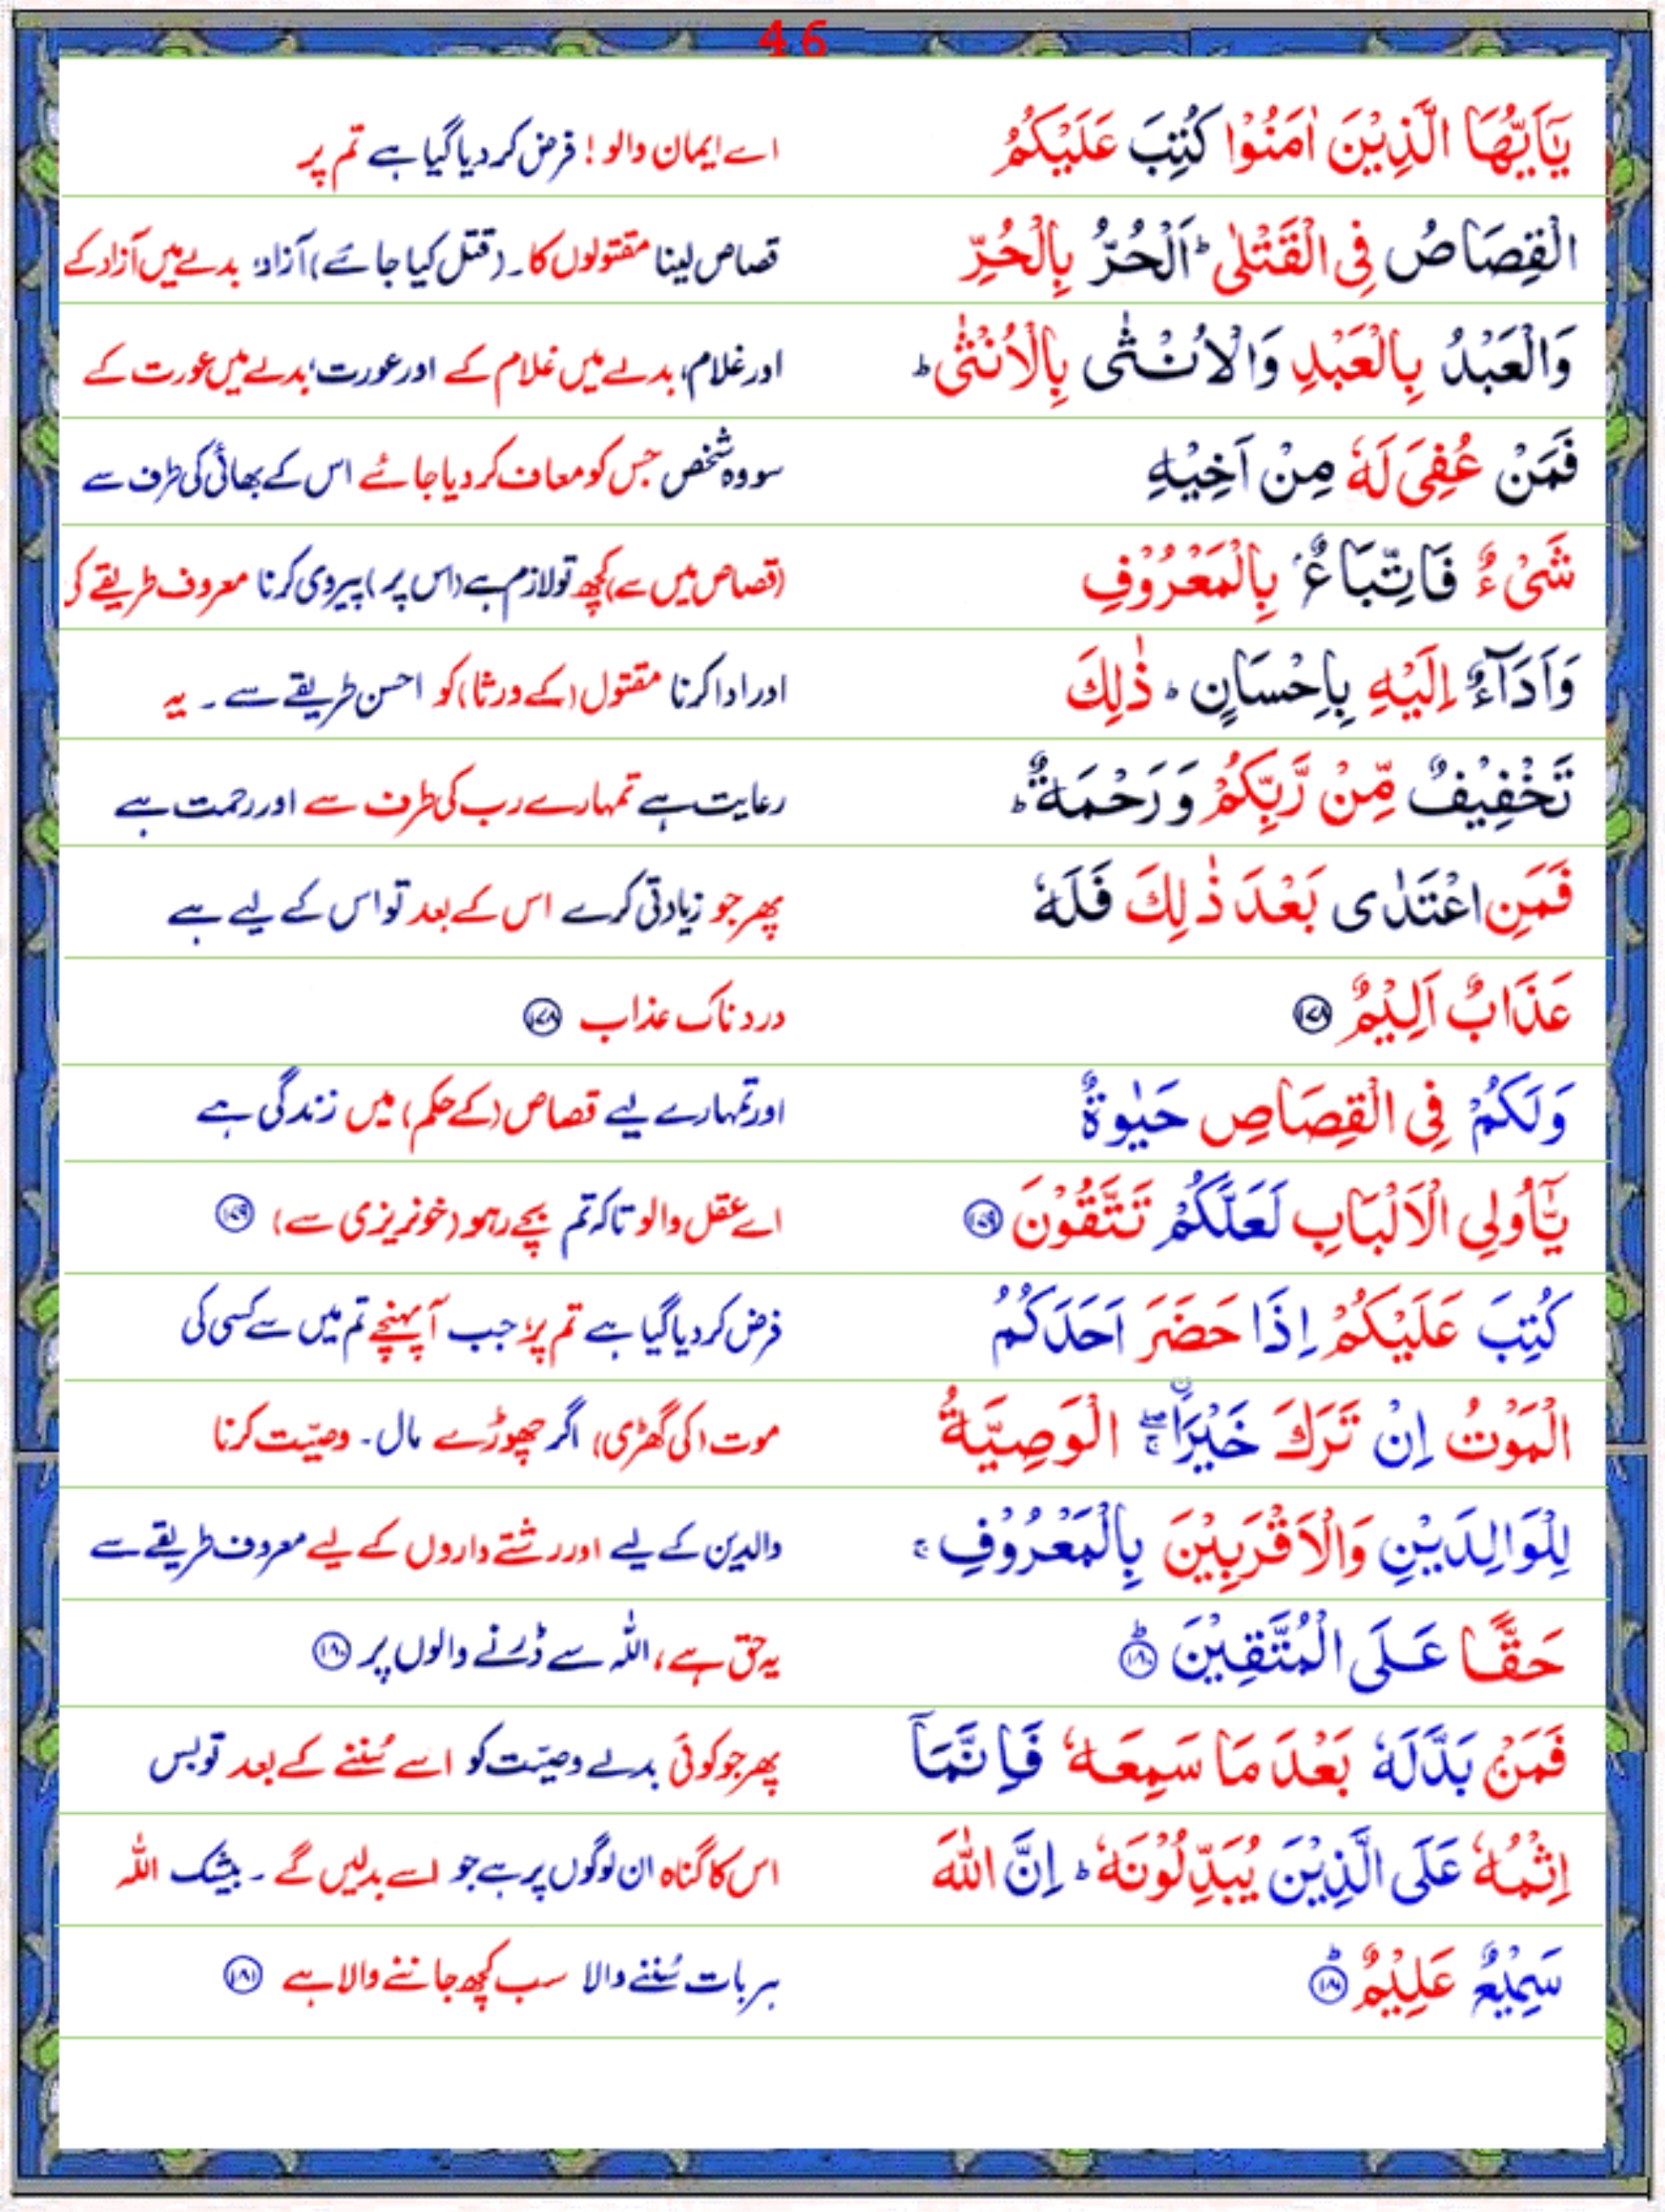 46
يٰۤاَيُّهَا الَّذِيْنَ اٰمَنُوْا كُتِبَ عَلَيْكُمُ اے ایمان والو ! فرض کر دیا گیا ہے تم پر
الْقِصَاصُ فِى الْقَتْلٰىؕ اَلْحُرُّ بِالْحُرِّ قصاص لینا مقتولوں کا۔ (قتل کیا جائے) آزاد، بدلے میں آزاد کے
وَالْعَبْدُ بِالْعَبْدِ وَالْاُنْثٰى بِالْاُنْثٰىؕ اور غلام، بدلے میں غلام کے اور عورت، بدلے میں عورت کے
فَمَنْ عُفِىَ لَهٗ مِنْ اَخِيْهِ سو وہ شخص جس کو معاف کر دیا جائے اس کے بھائی کی طرف سے
شَىْءٌ فَاتِّبَاعٌۢ بِالْمَعْرُوْفِ (قصاص میں سے) کچھ تو لازم ہے (اس پر) پیروی کرنا معروف طریقے کی
وَاَدَآءٌ اِلَيْهِ بِاِحْسَانٍؕ ذٰلِكَ اور ادا کرنا مقتول (کے ورثا) کو احسن طریقے سے ۔ یہ
تَخْفِيْفٌ مِّنْ رَّبِّكُمْ وَرَحْمَةٌؕ رعایت ہے تمہارے رب کی طرف سے اور رحمت ہے
فَمَنِ اعْتَدٰى بَعْدَ ذٰلِكَ فَلَهٗ پھر جو زیادتی کرے اس کے بعد تو اس کے لیے ہے
عَذَابٌ اَلِيْمٌ ۱۷۸ دردناک عذاب ۱۷۸
وَلَكُمْ فِى الْقِصَاصِ حَيٰوةٌ اور تمہارے لیے قصاص (کے حکم) میں زندگی ہے
يّٰۤاُولِى الْاَلْبَابِ لَعَلَّكُمْ تَتَّقُوْنَ ۱۷۹ اے عقل والو تاکہ تم بچے رہو (خونریزی سے) ۱۷۹
كُتِبَ عَلَيْكُمْ اِذَا حَضَرَ اَحَدَكُمُ فرض کر دیا گیا ہے تم پر، جب آ پہنچے تم میں سے کسی کی
الْمَوْتُ اِنْ تَرَكَ خَيْرَاۖۚ ۨ الْوَصِيَّةُ موت (کی گھڑی) اگر چھوڑے مال۔ وصیّت کرنا
لِلْوَالِدَيْنِ وَالْاَقْرَبِيْنَ بِالْمَعْرُوْفِۚ والدین کے لیے اور رشتے داروں کے لیے معروف طریقے سے
حَقًّا عَلَى الْمُتَّقِيْنَؕ ۱۸۰ یہ حق ہے، اللہ سے ڈرنے والوں پر ۱۸۰
فَمَنْۢ بَدَّلَهٗ بَعْدَ مَا سَمِعَهٗ فَاِنَّمَاۤ پھر جو کوئی بدلے وصیّت کو اسے سُننے کے بعد تو بس
اِثْمُهٗ عَلَى الَّذِيْنَ يُبَدِّلُوْنَهٗؕ اِنَّ اللّٰهَ اس کا گناہ ان لوگوں پر ہے جو اسے بدلیں گے ۔ بیشک اللہ
سَمِيْعٌ عَلِيْمٌؕ ہر بات سُننے والا سب کچھ جاننے والا ہے ۱۸۱